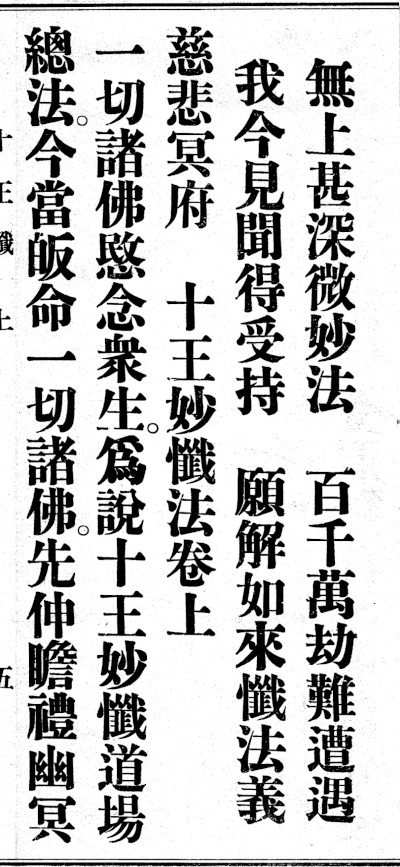 無上甚深微妙法　百千萬劫難遭遇
我今見聞得受持　願解如來懺法義
慈悲冥府　十王妙懺法卷上
一切諸佛愍念衆生。爲說十王妙懺道場
總法。今當皈命一切諸佛。先伸瞻禮幽冥
十王懺上　五